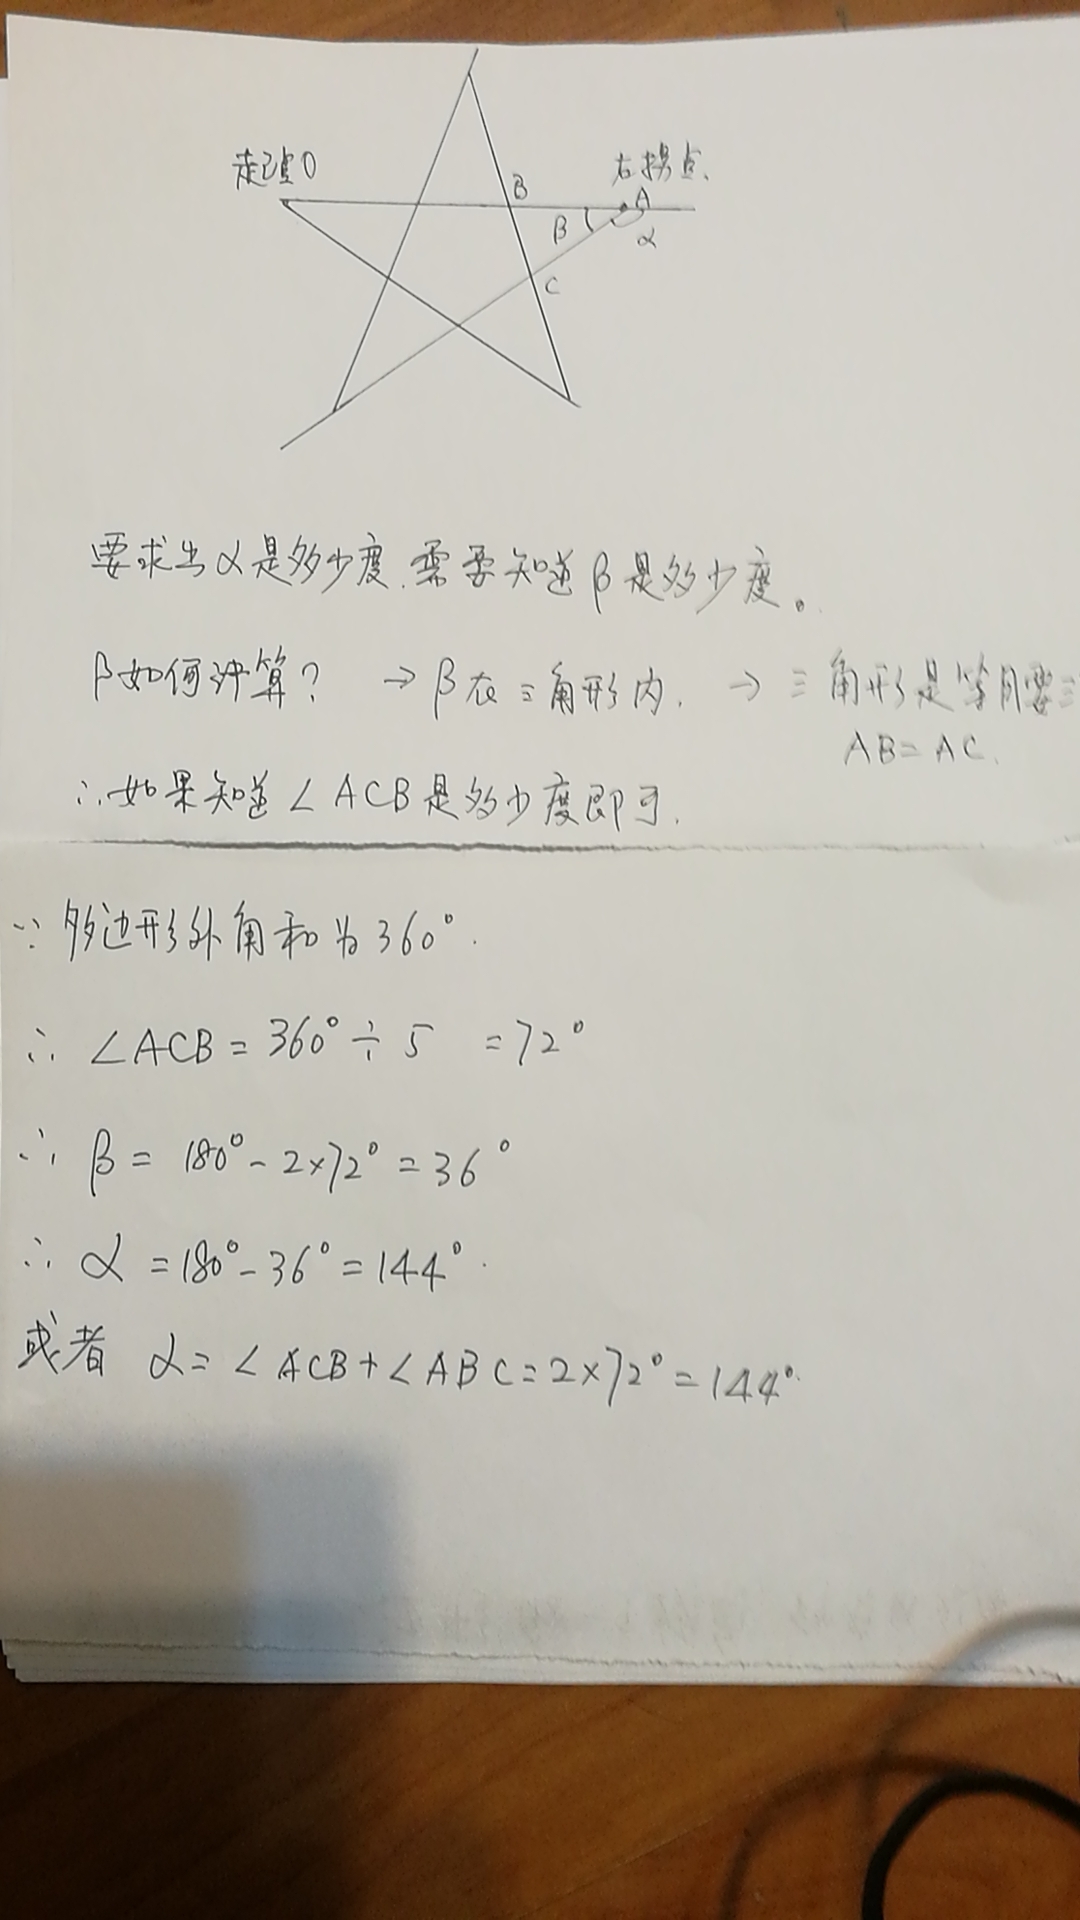 起点O
B
右拐点.
A
β
α
C
要求出α是多少度.需要知道β是多少度。
β如何计算? → β在三角形内. → 三角形是等腰三
AB=AC.
∴如果知道∠ACB是多少度即可.
∵多边形外角和为360°.
∴∠ACB=360°÷5 =72°
∴β=180°-2×72°=36°
∴α=180°-36°=144°.
或者 α=∠ACB+∠ABC=2×72°=144°.